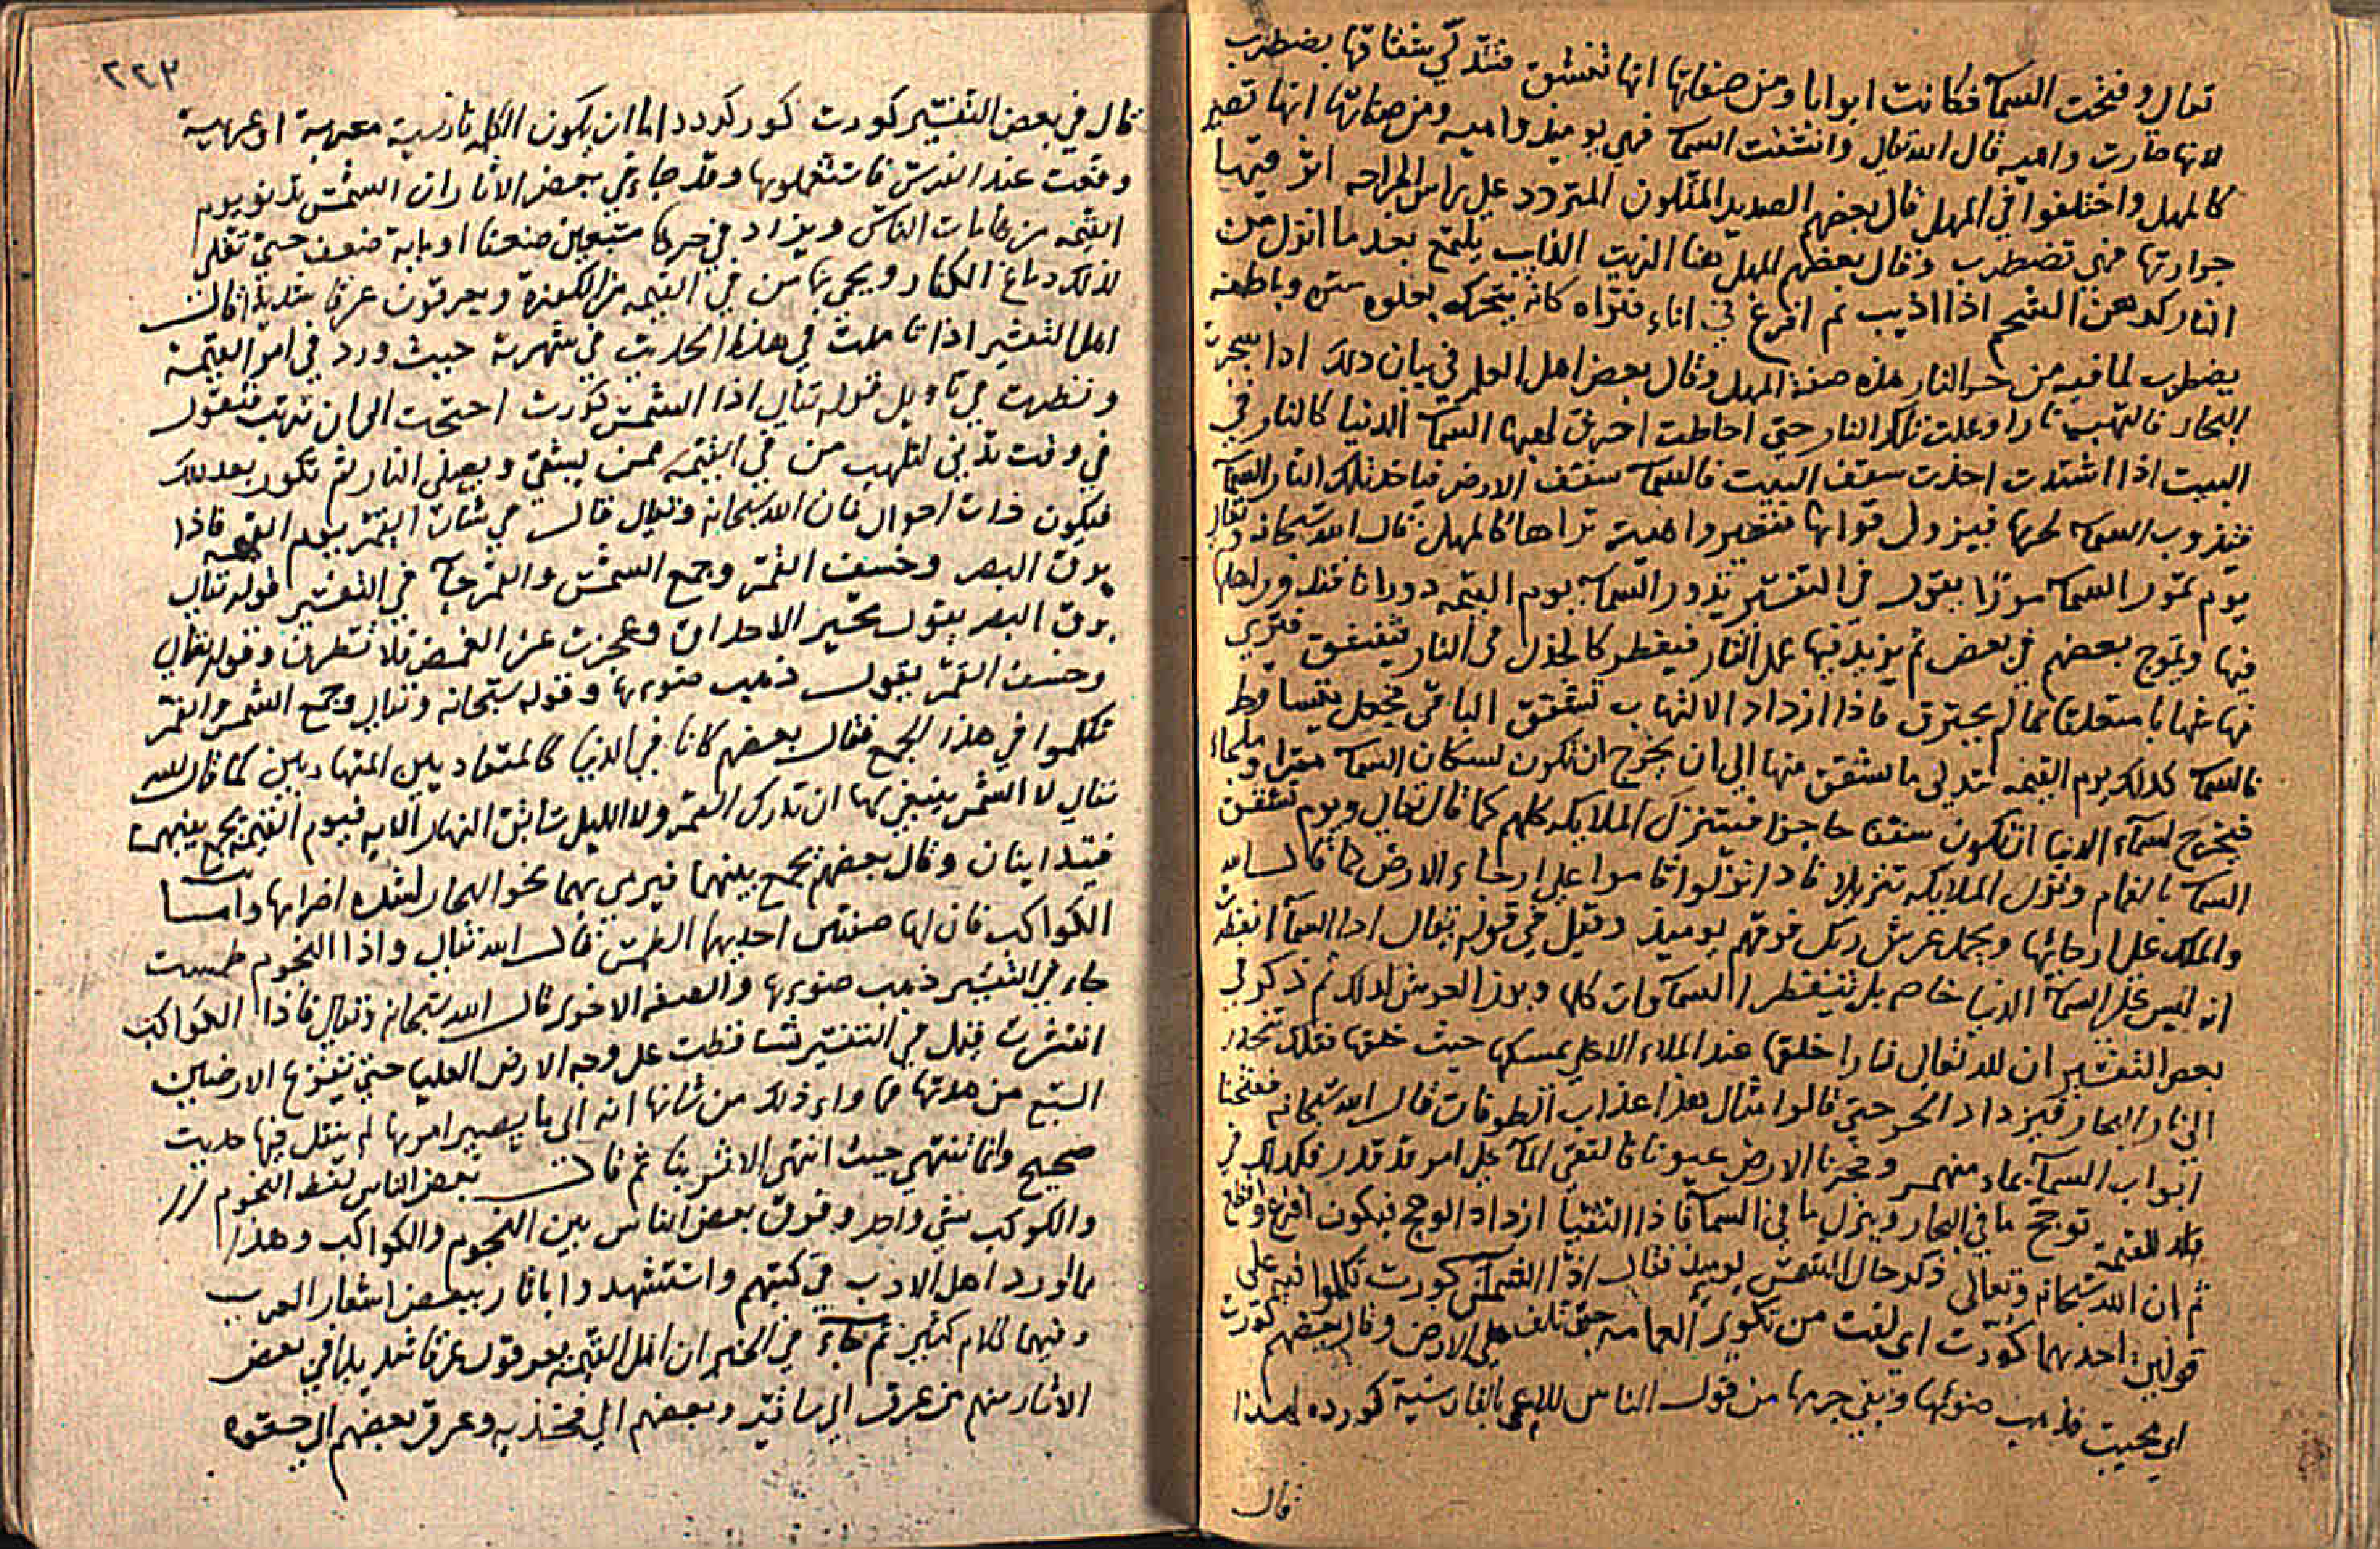 تعالى وفتحت السمآ فكانت ابوابا ومن صفاتها انها تنشق فتذكر شقاقها يضطرب
لانها صارت واهيه قال الله تعالى وانشقت السما فهي يوميذ واهيه ومن صفاتها انها تصير
كالمهل واختلفوا في المهل قال بعضهم الصديد المتلون المتردد على راس الجراحه اثر فيها
حرارتها فهي تضطرب وقال بعضهم المهل هنا الزيت الذايب يلمع بعد ما انزل من
النار كدهن الشحم اذا اذيب ثم افرغ في اناء فتراه كانه يتحرك يعلوه شره وباطنه
يضطرب لما فيه من حر النار هذه صفة المهل وقال بعض اهل العلم في بيان ذلك اذا سجرت
البحار فالتهبت نارا وعلت تلك النار حتى احاطت احترق لهبها السما الدنيا كالنار في
البيت اذا اشتدت اخذت سقف البيت فالسما سقف الارض فياخذ تلك النار السما
فيذوب السما لحرها فيزول قواها فتصير واهية تراها كالمهل قال الله سبحانه وتعالى
يوم تمور السما مورا يقول في التفسير تدور السما يوم القيمه دورانا فتدور اهلها
فيها ويموج بعضهم في بعض ثم يزيد فيها عمل النار فيفطر كالجذل في النار يتفتق فترى
نهاياتها متعلقا مما لم يحترق فاذا ازداد الالتهاب تشقق الباقي فجعل يتساقط
فالسما كذلك يوم القيمه تتدلى ما تشقق منها الى ان يخرج ان تكون لسكان السما مقرا وملجاا
فيخرج لسماء الدنيا ان تكون سقفا حاجزا فيتنزل الملايكه كلهم كما قال تعالى ويوم تشقق
السما بالغمام ونزل الملايكه تنزيلا فاذا نزلوا قاموا على ارجاء الارض كما قال الله
والملك على ارجائها ويحمل عرش ربك فوقهم يوميذ وقيل في قوله تعالى اذا السمآ انفطرت
انه ليس على السمآ الدنيا خاص بل تنفطر السماوات كلها ويبرز العرش لذلك ثم ذكر في
بعض التفسير ان لله تعالى نارا خلقها عند الملاء الاعلى يمسكها حيث خلقها فتلك تنحدر
الى نار البحار فيزداد الحر حتى قالوا مثال هذا عذاب الطوفان قال الله سبحانه ففتحنا
ابواب السمآ بماء منهمر وفجرنا الارض عيونا فالتقى المآ على امر قد قدر فكذلك في
توهج ما في البحار وينزل ما في السمآ فاذا التقيا ازداد الوهج فيكون افزع وافظع
ثم ان الله سبحانه وتعالى ذكر حال الشمس يوميذ فقال اذا الشمس كورت تكلموا فيه على
قولين احدهما كورت اي لفت من تكوير العمامه حتى تلف على الارض وقال بعضهم كورت
اي محيت فذهب ضوئها وبقي جرمها من قول الناس للاعمى بالفارسية كورده لهذا
قال
٢٢٣
قال في بعض التفسير كورت كور كردد اما ان يكون الكل فارسية معربة او عربية
وقعت عند الفرس فاستعملوها وقد جاء في بعض الاثار ان الشمس تدنو يوم
القيمه من هامات الناس ويزاد في حرها سبعين ضعفا او ماية ضعف حتى تغلي
لذلك دماغ الكفار ويحمى بها من في القيمه من الكفرة ويعرقون عرقا شديدا قال
اهل التفسير اذا تاملت في هذا الحديث في شهرته حيث ورد في امر القيمة
ونظرت في تاويل قوله تعالى اذا الشمس كورت احتجت الى ان ترتب فتقول
في وقت تدنى لتلهب من في القيمه ممن يشقى ويصلى النار ثم تكور بعد ذلك
فيكون ذات احوال فان الله سبحانه وتعالى قال في شان القمر يوم القيمه فاذا
برق البصر وخسف القمر وجمع الشمس والقمر جآ في التفسير قوله تعالى
برق البصر يقول تحير الاحداق وعجزت عن الغمض فلا تنطرف وقوله تعالى
وخسف القمر يقول ذهب ضوئها وقوله سبحانه وتعالى وجمع الشمس والقمر
تكلموا في هذا الجمع فقال بعضهم كانا في الدنيا كالمتعاديين المتهاربين كما قال الله
تعالى لا الشمس ينبغي لها ان تدرك القمر ولا الليل سابق النهار الايه فيوم القيمه يجمع بينهما
وقال بعضهم يجمع بينهما فيرمى بهما نحو البحار لشده اضرابها واما
الكواكب فان لها صفتين احديهما الطمس قال الله تعالى واذا النجوم طمست
جاء في التفسير ذهب ضوئها والصفه الاخرى قال الله سبحانه وتعالى فاذا الكواكب
انتثرت قيل في التفسير تساقطت على وجه الارض العليا حتى تفزع الارضين
السبع من هدتها فما وراء ذلك من شانها انه الى ما يصير امرها لم ينقل فيها حديث
صحيح وانما ننتهي حيث انتهى الاثر بنا ثم قال بعض الناس لفظ النجوم
والكوكب شي واحد وفرق بعض الناس بين النجوم والكواكب وهذا
ما اورد اهل الادب في كتبهم واستشهدوا باثار ببعض اشعار العرب
وفيهما كلام كثير ثم جاء في الخبر ان اهل القيمه يعرقون عرقا شديدا في بعض
الاثار منهم من عرق الى ساقيه وبعضهم الى فخذيه وعرق بعضهم الى حقوه